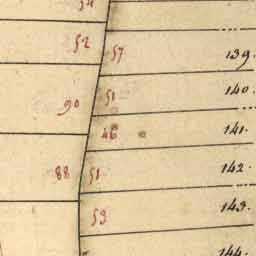 54
52 57 139.
90 51 140.
46 141.
88 51 142.
53 143.
144.